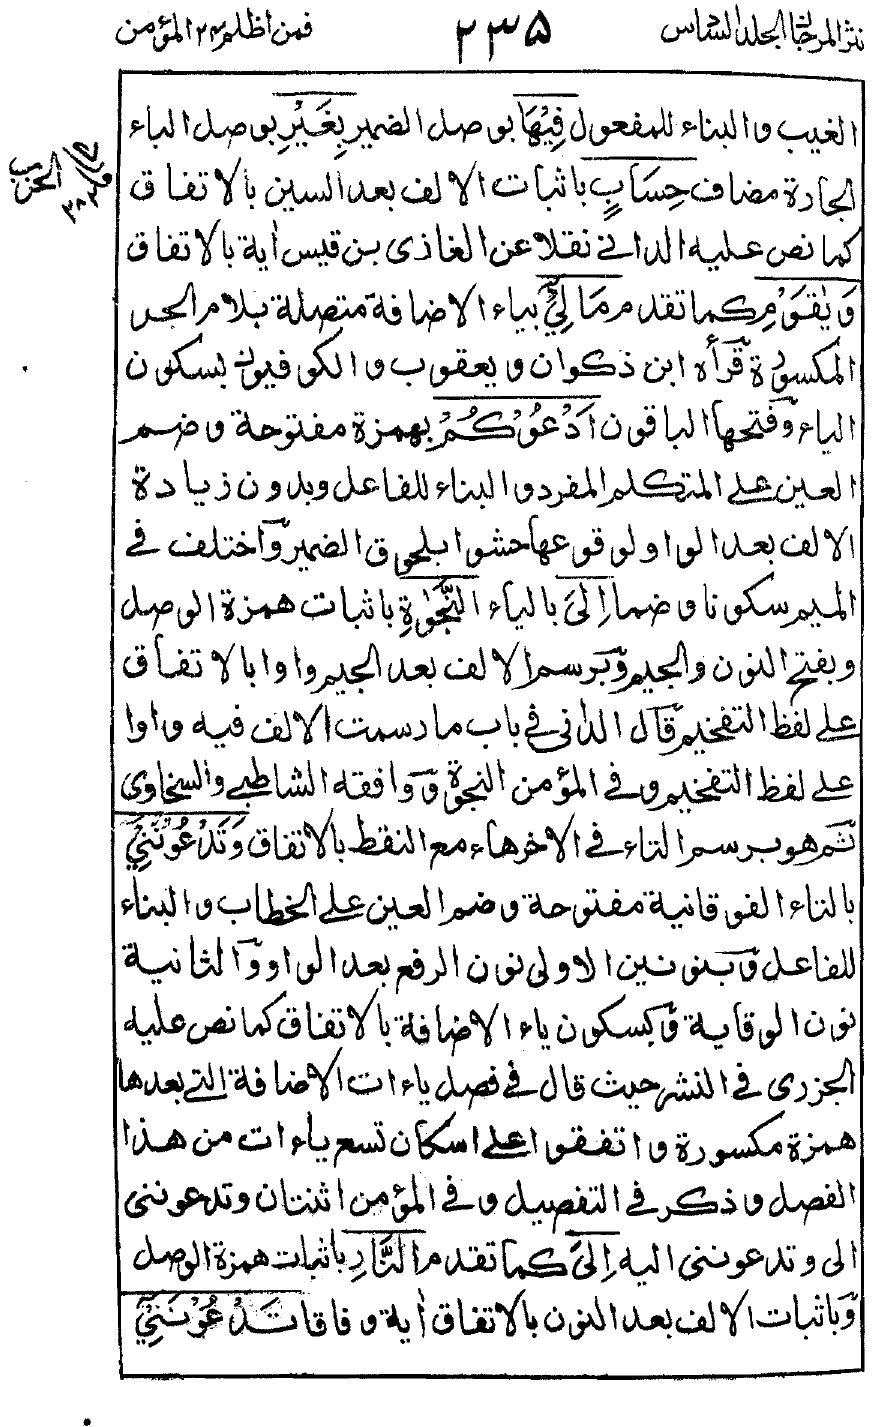 نثر المرجان الجلد السادس ٢٣٥ فمن اظلم ٢٤ المؤمن
الغيب والبناء للمفعول فِيْهَا بوصل الضمير بِغَيْرِ بوصل الباء
الجارة مضاف حِسَابٍ باثبات الالف بعد السين بالاتفاق
كما نص عليه الداني نقلا عن الغازى بن قيس اٰية بالاتفاق
وَيٰقَوْمِ كما تقدم مَا لِيْٓ بياء الاضافة متصلة بلام الجر
المكسورة قرأه ابن ذكوان ويعقوب والكوفيون بسكون
الياء وفتحها الباقون اَدْعُوْكُمْ بهمزة مفتوحة وضم
العين على المتكلم المفرد والبناء للفاعل وبدون زيادة
الالف بعد الواو لوقوعها حشوا بلحوق الضمير واختلف في
الميم سكونا وضما اِلَى بالياء النَّجٰوةِ باثبات همزة الوصل
وبفتح النون والجيم وبرسم الالف بعد الجيم واوا بالاتفاق
على لفظ التفخيم قال الدانى في باب ما رسمت الالف فيه واوا
على لفظ التفخيم وفي المؤمن النجوة ووافقه الشاطبي والسخاوى
ثم هو برسم التاء في الاخر هاء مع النقط بالاتفاق وَتَدْعُوْنَنِيْٓ
بالتاء الفوقانية مفتوحة وضم العين على الخطاب والبناء
للفاعل وبنونين الاولى نون الرفع بعد الواو والثانية
نون الوقاية وبسكون ياء الاضافة بالاتفاق كما نص عليه
الجزرى في النشر حيث قال في فصل ياءات الاضافة التي بعدها
همزة مكسورة واتفقوا على اسكان تسع ياءات من هذا
الفصل وذكر في التفصيل وفي المؤمن اثنتان وتدعوننى
الى وتدعوننى اليه اِلَى كما تقدم النَّارِ باثبات همزة الوصل
وباثبات الالف بعد النون بالاتفاق اٰية وفاقا تَدْعُوْنَنِيْٓ
الحزب